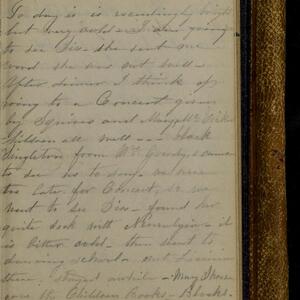 To day is is exceedingly bright
but very cold — I am going
to see Sis she sent me
word she was not well —
After dinner I think of
going to a Concert given
by Squires and
children all well —
Singleton from Mt. came
to see us to day — we were
too late for Concert, so we
went to see Sis — found her
quite sick with Neuralgia — it
is bitter cold — then went to
dancing school —
there, stayed awhile —
gave the Children Books — Blocks